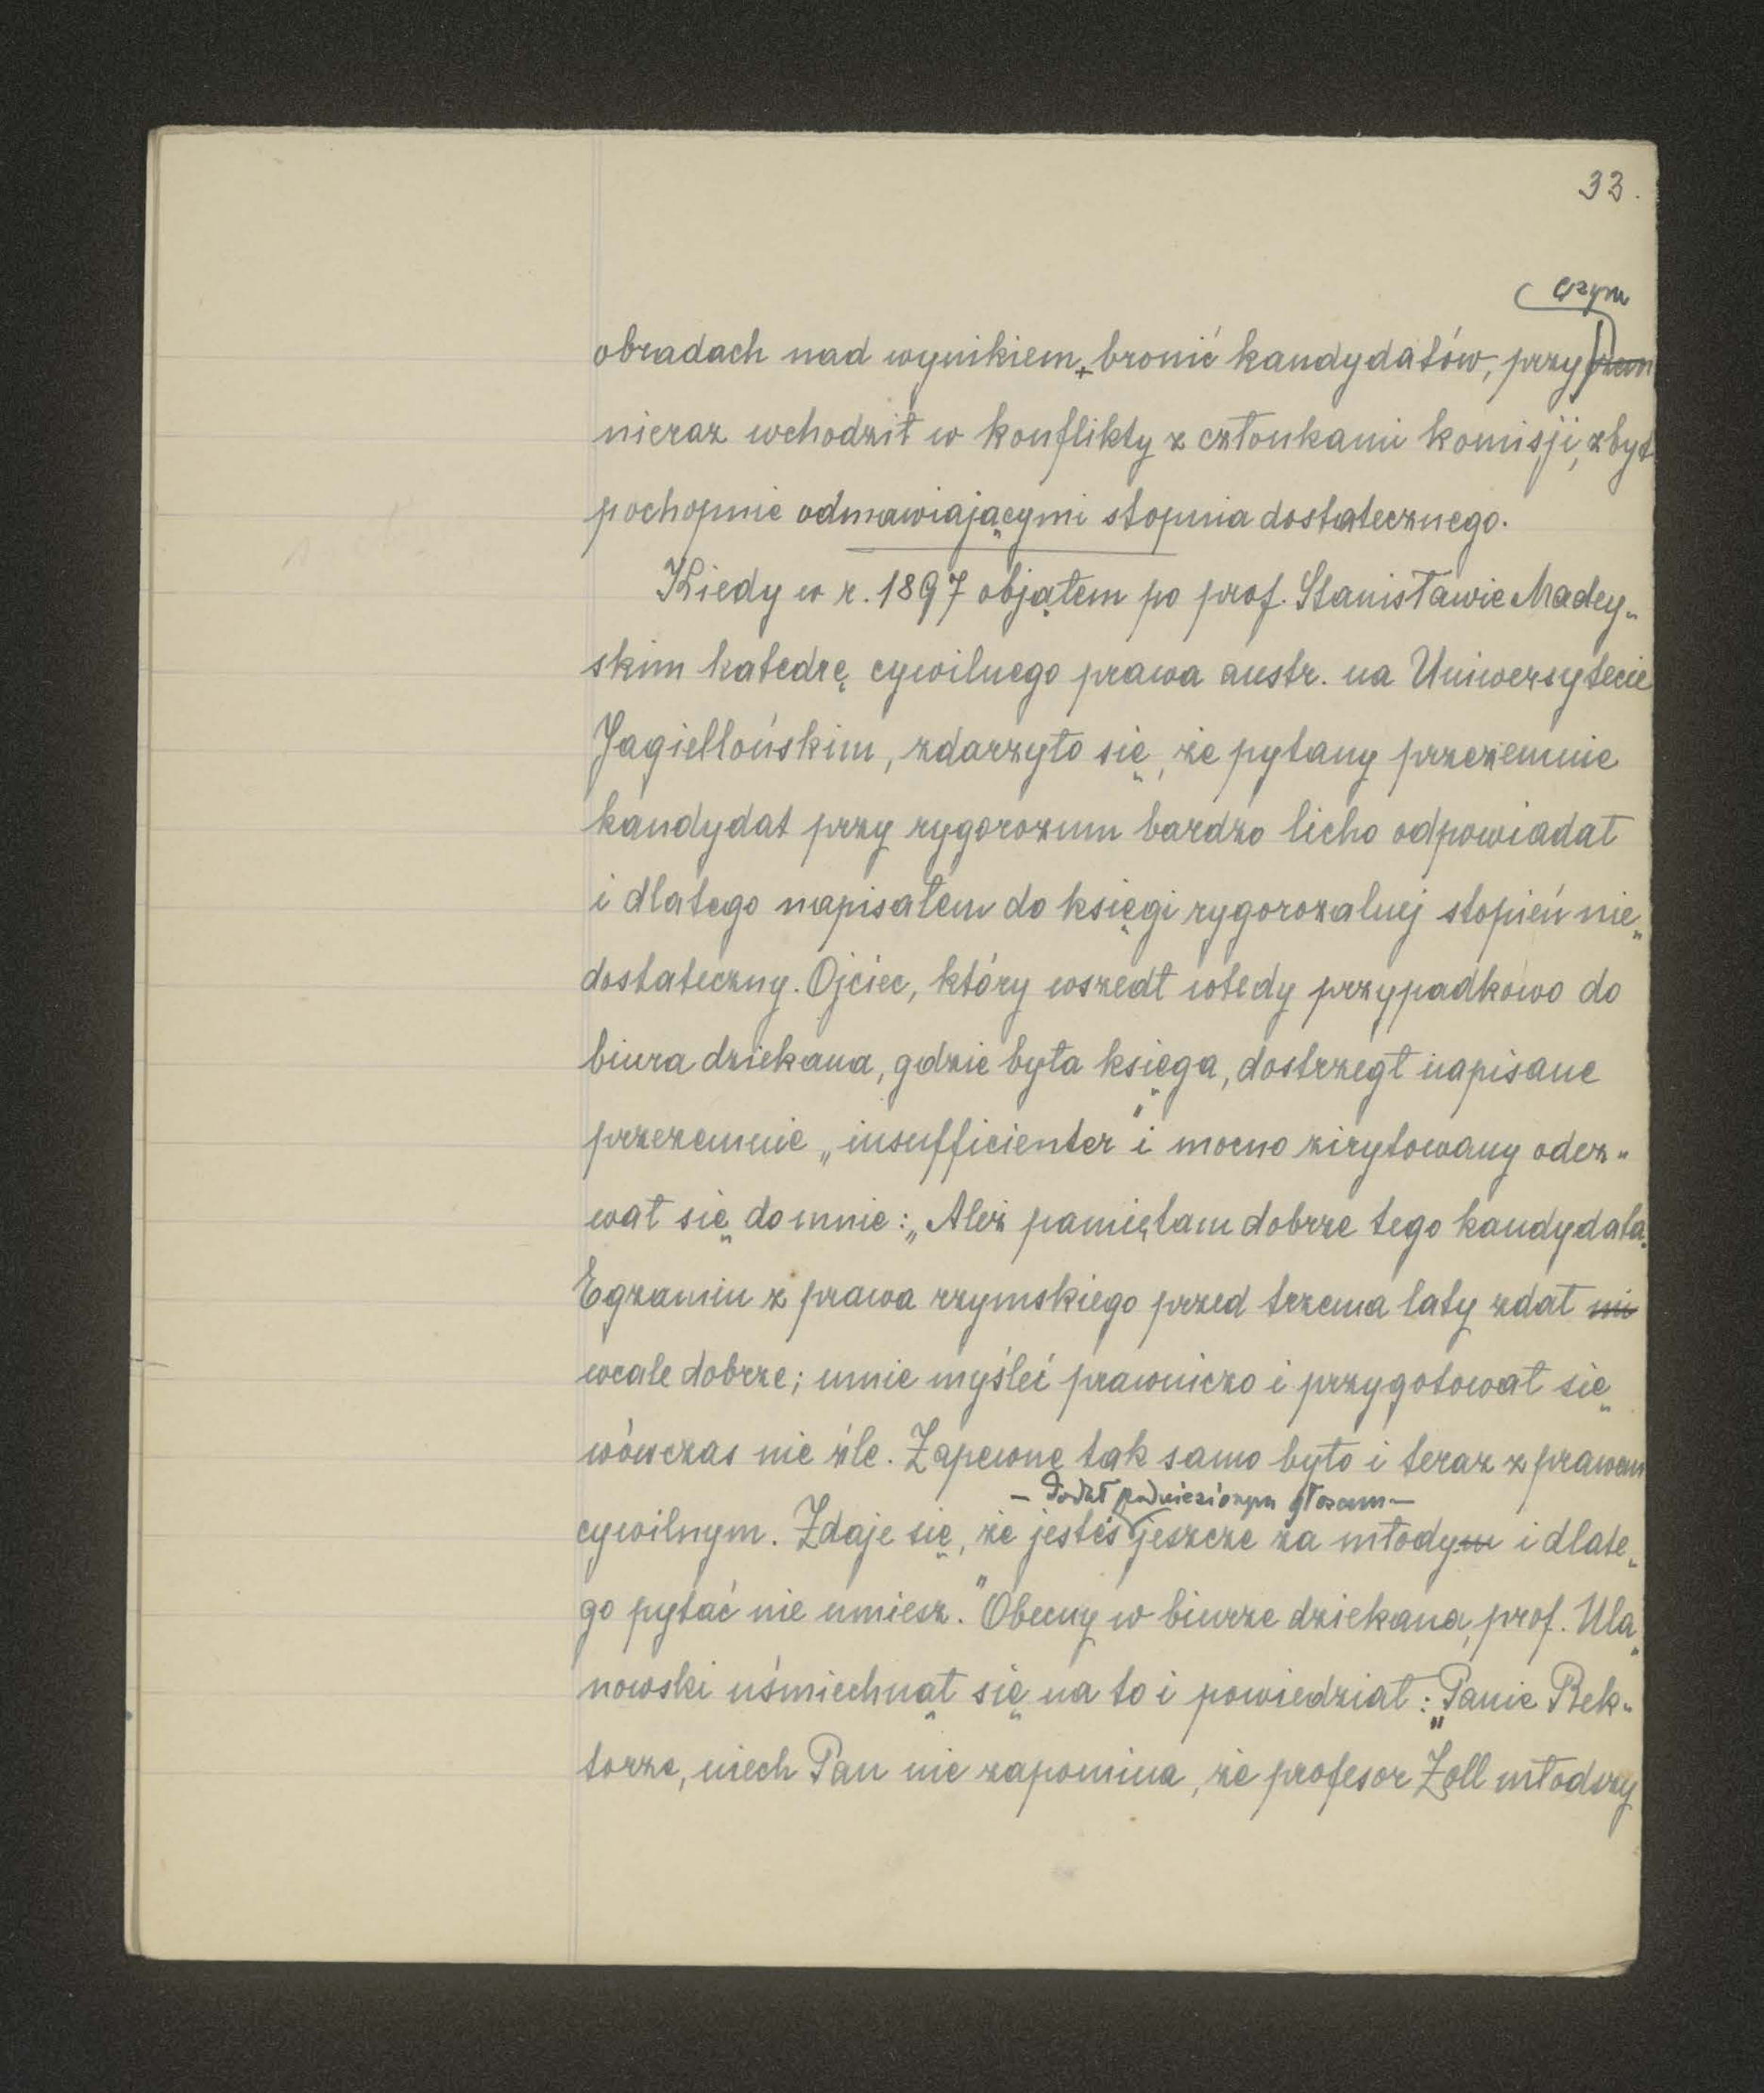 33.
czym
obradach nad wynikiem bronić kandydatów, przy
nieraz wchodził w konflikty z członkami komisji, zbyt
pochopnie odmawiającymi stopnia dostatecznego.
Kiedy w r. 1897 objąłem po prof. Stanisławie Madey„
skim katedrę cywilnego prawa austr. na Uniwersytecie
Jagiellońskim, zdarzyło się, że pytany przezemnie
kandydat przy rygorozum bardzo licho odpowiadał
i dlatego napisałem do księgi rygorozalnej stopień nie„
dostateczny. Ojciec, który wszedł wtedy przypadkowo do
biura dziekana, gdzie była księga, dostrzegł napisane
przezemnie „insufficienter" i mocno zirytowany odez„
wał się do mnie: „Ależ pamiętam dobrze tego kandydata.
Egzamin z prawa rzymskiego przed trzema laty zdał ni
wcale dobrze; umie myśleć prawniczo i przygotował się
wówczas nie źle. Zapewne tak samo było i teraz z prawem
– dodał podniesionym głosem –
cywilnym. Zdaje się, że jesteś jeszcze za młodym i dlate„
go pytać nie umiesz." Obecny w biurze dziekana, prof. Ula„
nowski uśmiechnął się na to i powiedział: „Panie Rek„
torze, niech Pan nie zapomina, że profesor Zoll młodszy